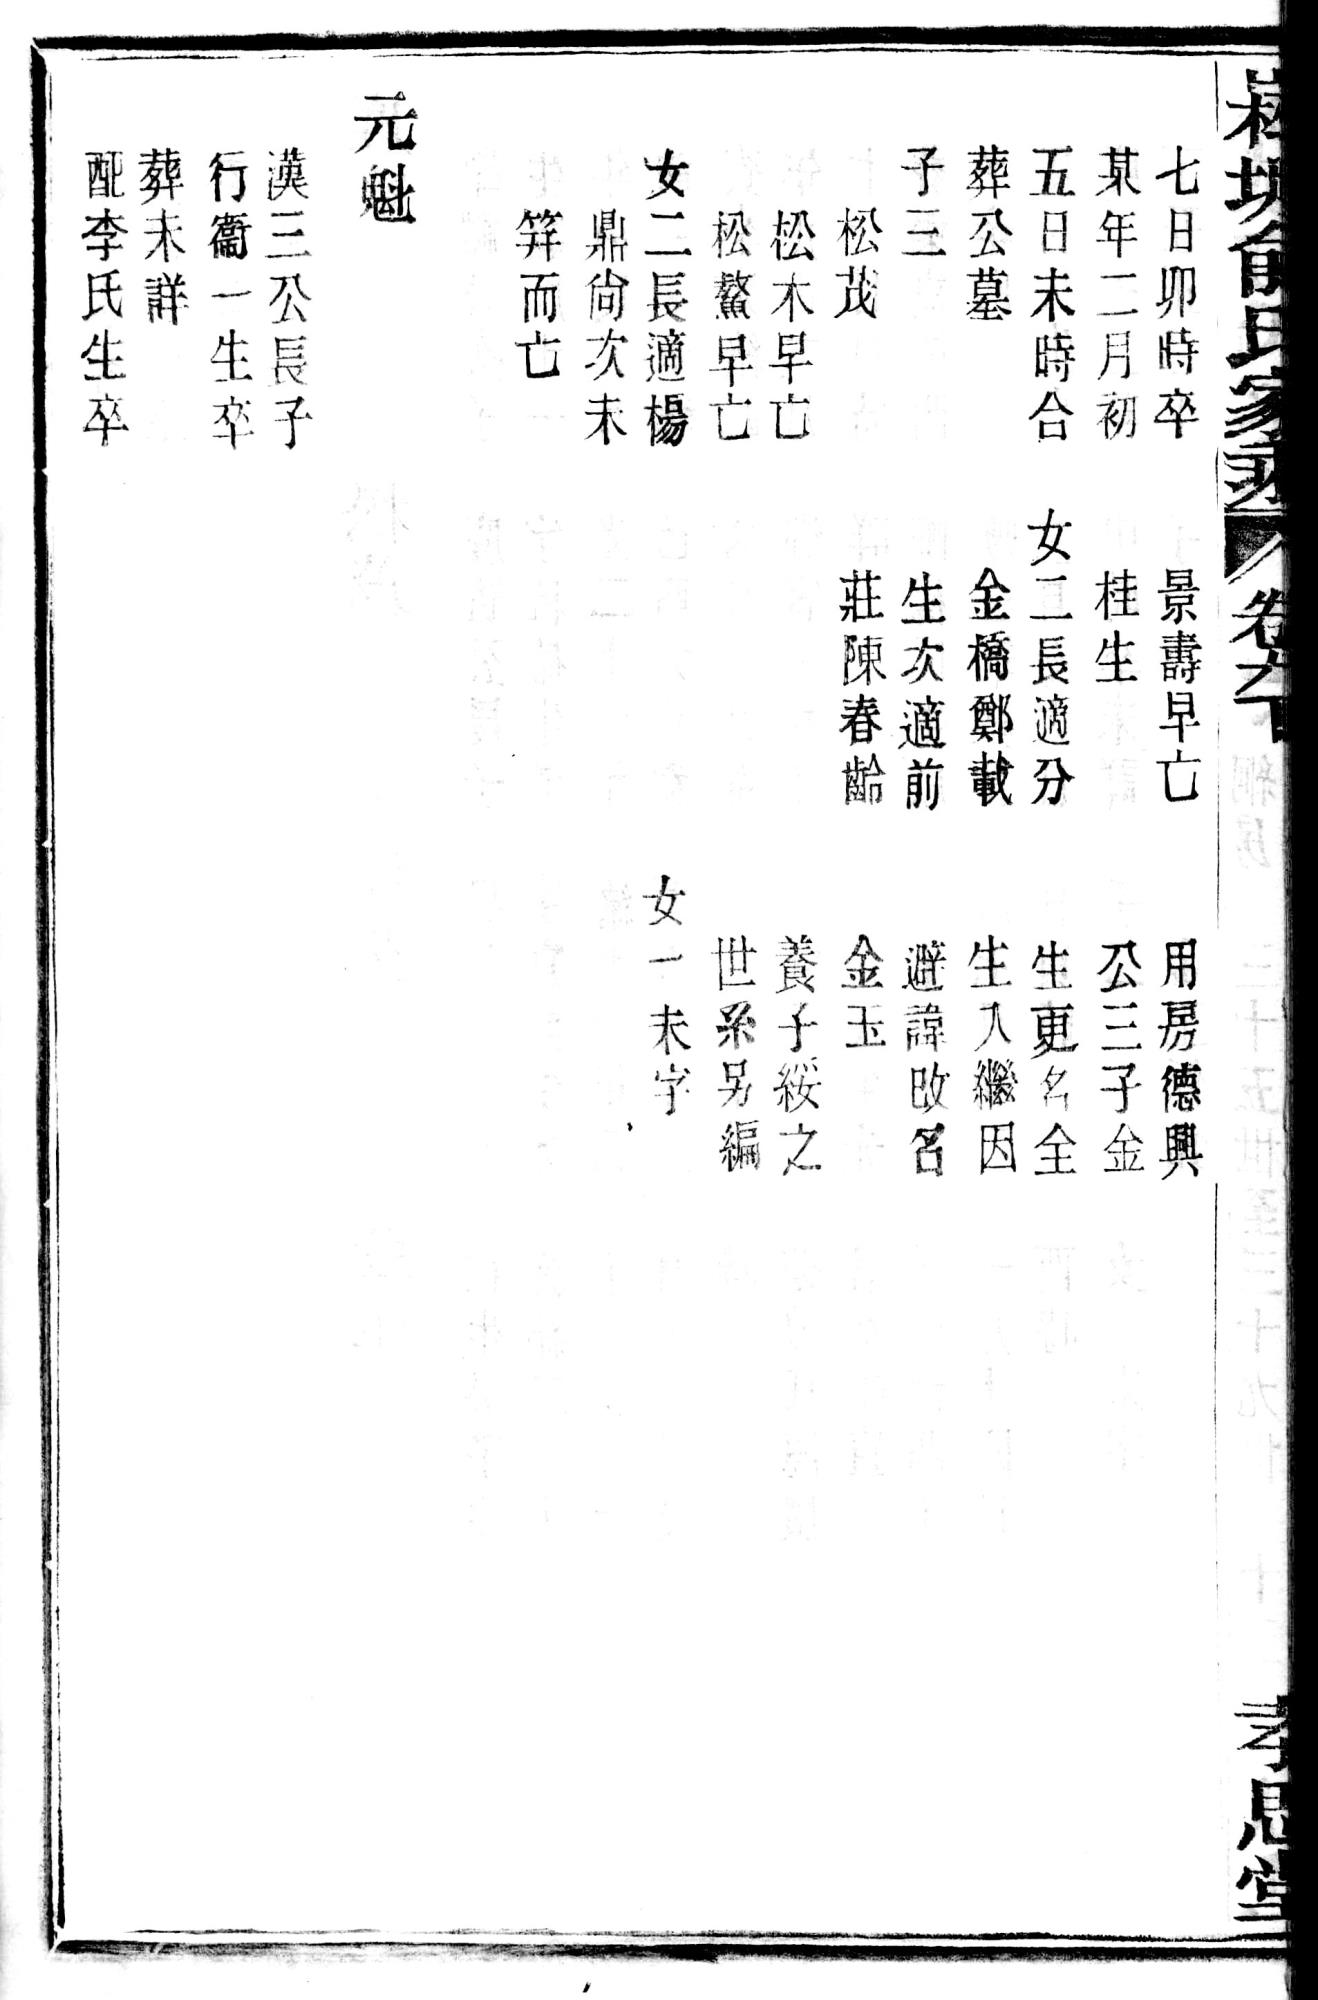 俞氏家乘
卷六下
孝思堂
七日卯時卒
某年二月初
五日未時合
葬公墓
子三
松茂
松木早亡
松鰲早亡
女二長適楊
鼎尙次未
笄而亡
元魁
漢三公長子
行衢一生卒
葬未詳
配李氏生卒
景壽早亡
桂生
女二長適分
金橋鄭載
生次適前
莊陳春齡
用房德興
公三子金
生更名全
生入繼因
避諱改名
金玉
養子綏之
世系另編
女一未字